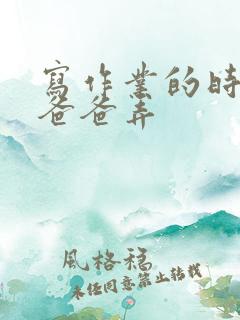 寫作業的時
爸爸弄
風格稿
未经同意禁止转载